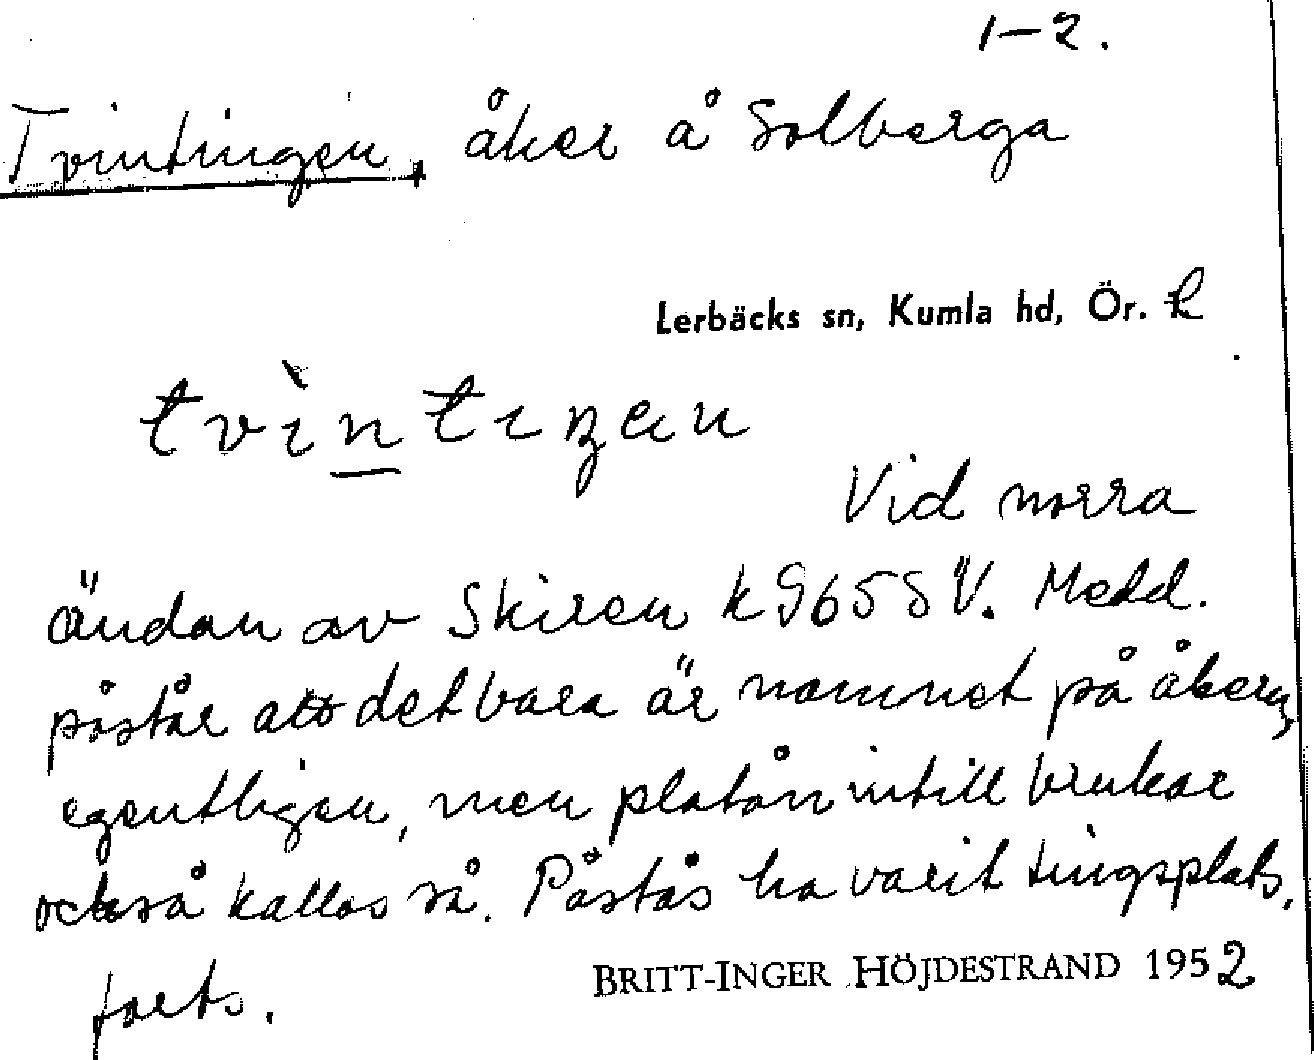 1–2.
Tvintingen, åker å Solberga
Lerbäcks sn, Kumla hd, Ör. l
tvìntıŋen
Vid norra
ändan av Skiren k 9658 V. Medd.
påstår att det bara är namnet på åkern,
egentligen, men platån intill brukar
också kallas så. Påstås ha varit tingsplats.
forts.
BRITT-INGER HÖJDESTRAND 1952